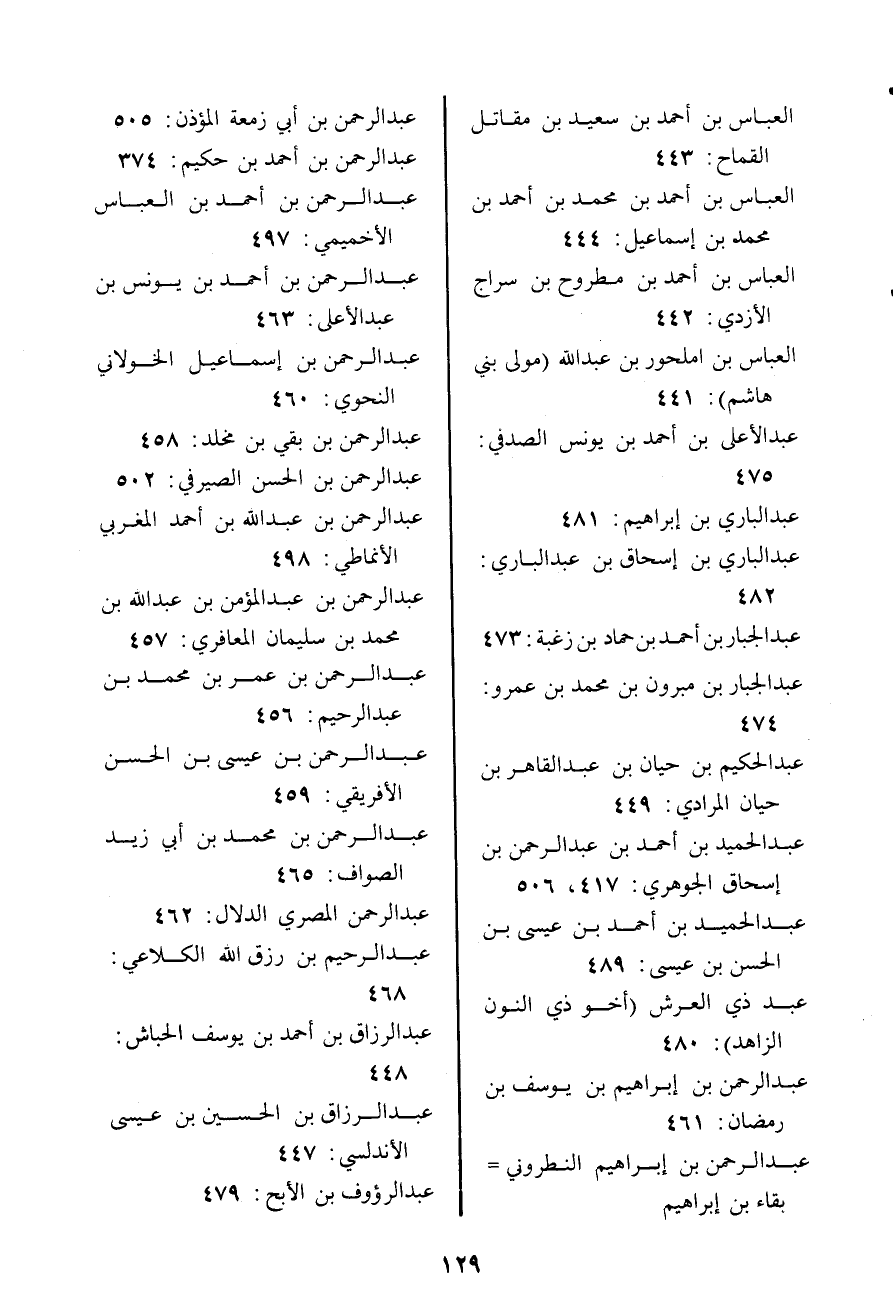 العباس بن أحمد بن سعيد بن مقاتل
القماح: ٤٤٣
العباس بن أحمد بن محمد بن أحمد بن
محمد بن إسماعيل: ٤٤٤
العباس بن أحمد بن مطروح بن سراج
الأزدي: ٤٤٢
العباس بن املحور بن عبدالله (مولى بني
هاشم): ٤٤١
عبدالأعلى بن أحمد بن يونس الصدفي:
٤٧٥
عبدالباري بن إبراهيم: ٤٨١
عبدالباري بن إسحاق بن عبدالباري:
٤٨٢
عبدالجبار بن أحمد بن حماد بن زغبة: ٤٧٣
عبدالجبار بن مبرون بن محمد بن عمرو:
٤٧٤
عبدالحكيم بن حيان بن عبدالقاهر بن
حيان المرادي: ٤٤٩
عبدالحميد بن أحمد بن عبدالرحمن بن
إسحاق الجوهري: ٤١٧، ٥٠٦
عبدالحميد بن أحمد بن عيسى بن
الحسن بن عيسى: ٤٨٩
عبد ذي العرش (أخو ذي النون
الزاهد): ٤٨٠
عبدالرحمن بن إبراهيم بن يوسف بن
رمضان: ٤٦١
عبدالرحمن بن إبراهيم النطروني =
بقاء بن إبراهيم
عبدالرحمن بن أبي زمعة المؤذن: ٥٠٥
عبدالرحمن بن أحمد بن حكيم: ٣٧٤
عبدالرحمن بن أحمد بن العباس
الأخميمي: ٤٩٧
عبدالرحمن بن أحمد بن يونس بن
عبدالأعلى: ٤٦٣
عبدالرحمن بن إسماعيل الخولاني
النحوي: ٤٦٠
عبدالرحمن بن بقي بن مخلد: ٤٥٨
عبدالرحمن بن الحسن الصيرفي: ٥٠٢
عبدالرحمن بن عبدالله بن أحمد المغربي
الأنماطي: ٤٩٨
عبدالرحمن بن عبدالمؤمن بن عبدالله بن
محمد بن سليمان المعافري: ٤٥٧
عبدالرحمن بن عمر بن محمد بن
عبدالرحيم: ٤٥٦
عبدالرحمن بن عيسى بن الحسن
الأفريقي: ٤٥٩
عبدالرحمن بن محمد بن أبي زيد
الصواف: ٤٦٥
عبدالرحمن المصري الدلال: ٤٦٢
عبدالرحيم بن رزق الله الكلاعي:
٤٦٨
عبدالرزاق بن أحمد بن يوسف الحباش:
٤٤٨
عبدالرزاق بن الحسين بن عيسى
الأندلسي: ٤٤٧
عبدالرؤوف بن الأبح: ٤٧٩
١٢٩